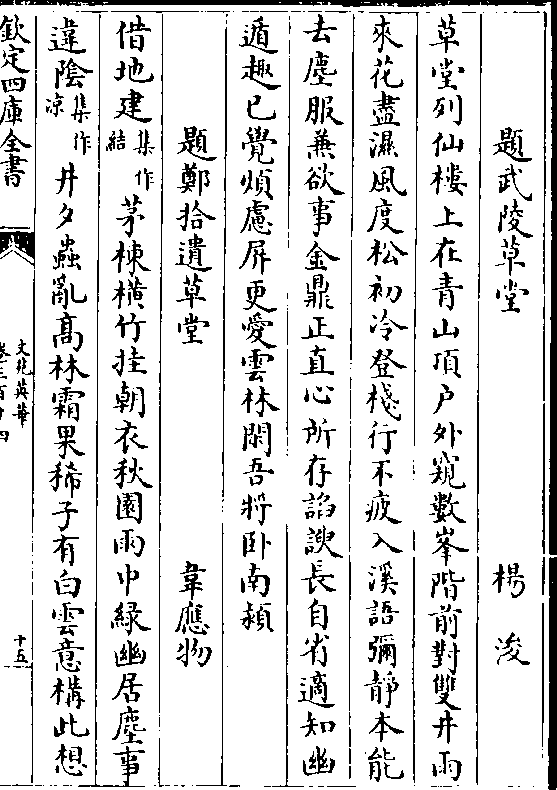 題武陵草堂 楊浚
草堂列仙樓上在青山頂户外窺數峯階前對雙井雨
來花盡濕風度松初冷登棧行不疲入溪語彌静本能
去塵服兼欲事金鼎正直心所存諂諛長自省適知幽
遁趣已覺煩慮屏更愛雲林閒吾將卧南潁
題鄭拾遺草堂 韋應物
借地建集作結茅棟横竹挂朝衣秋園雨中緑幽居塵事
違陰集作凉井夕蟲亂髙林霜果稀子有白雲意構此想
欽定四庫全書
文苑英華
十五